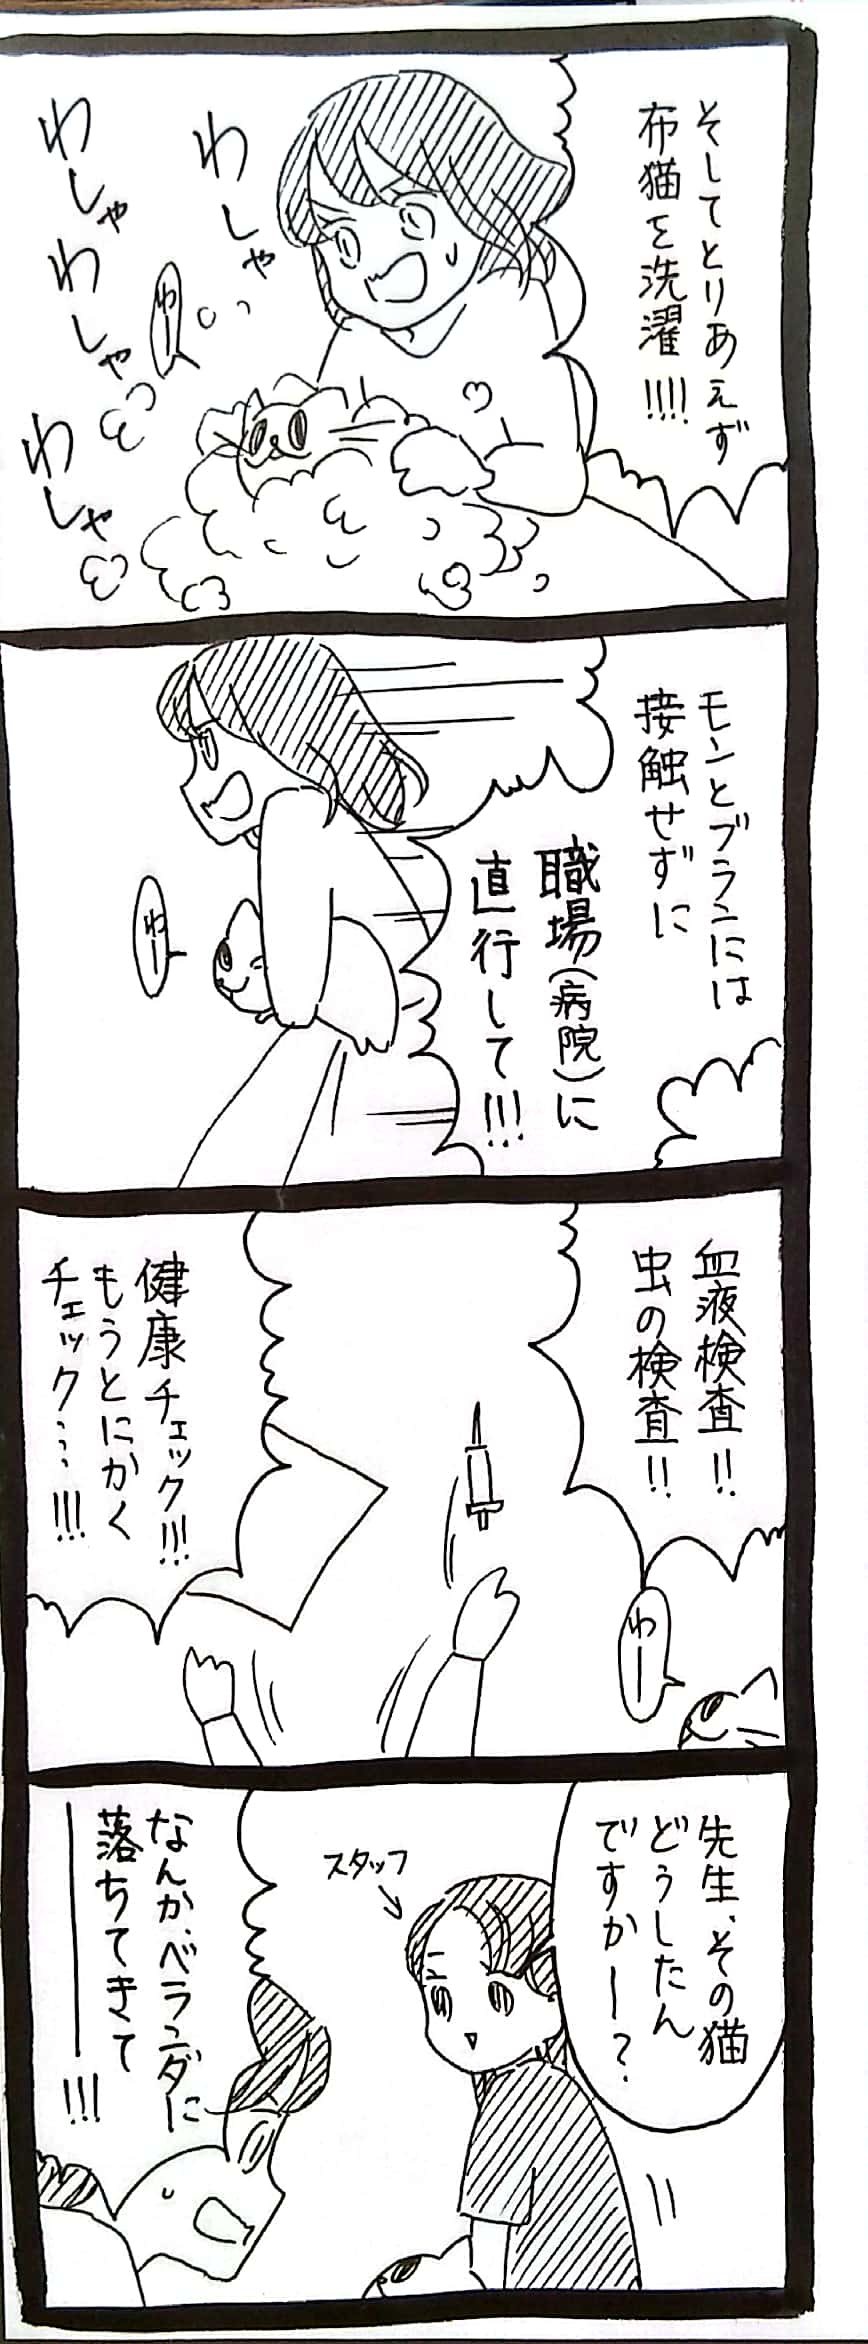 そしてとりあえず
布猫を洗濯!!!!
わしゃ
わしゃ
わしゃ
わしゃ
わー
モンとブランには
接触せずに
職場(病院)に
直行して!!!
わー
血液検査!!
虫の検査!!
わー
健康チェック!!!
もうとにかく
チェック…!!!
先生、その猫
どうしたん
ですかー?
スタッフ
なんか、ベランダに
落ちてきて
――!!!